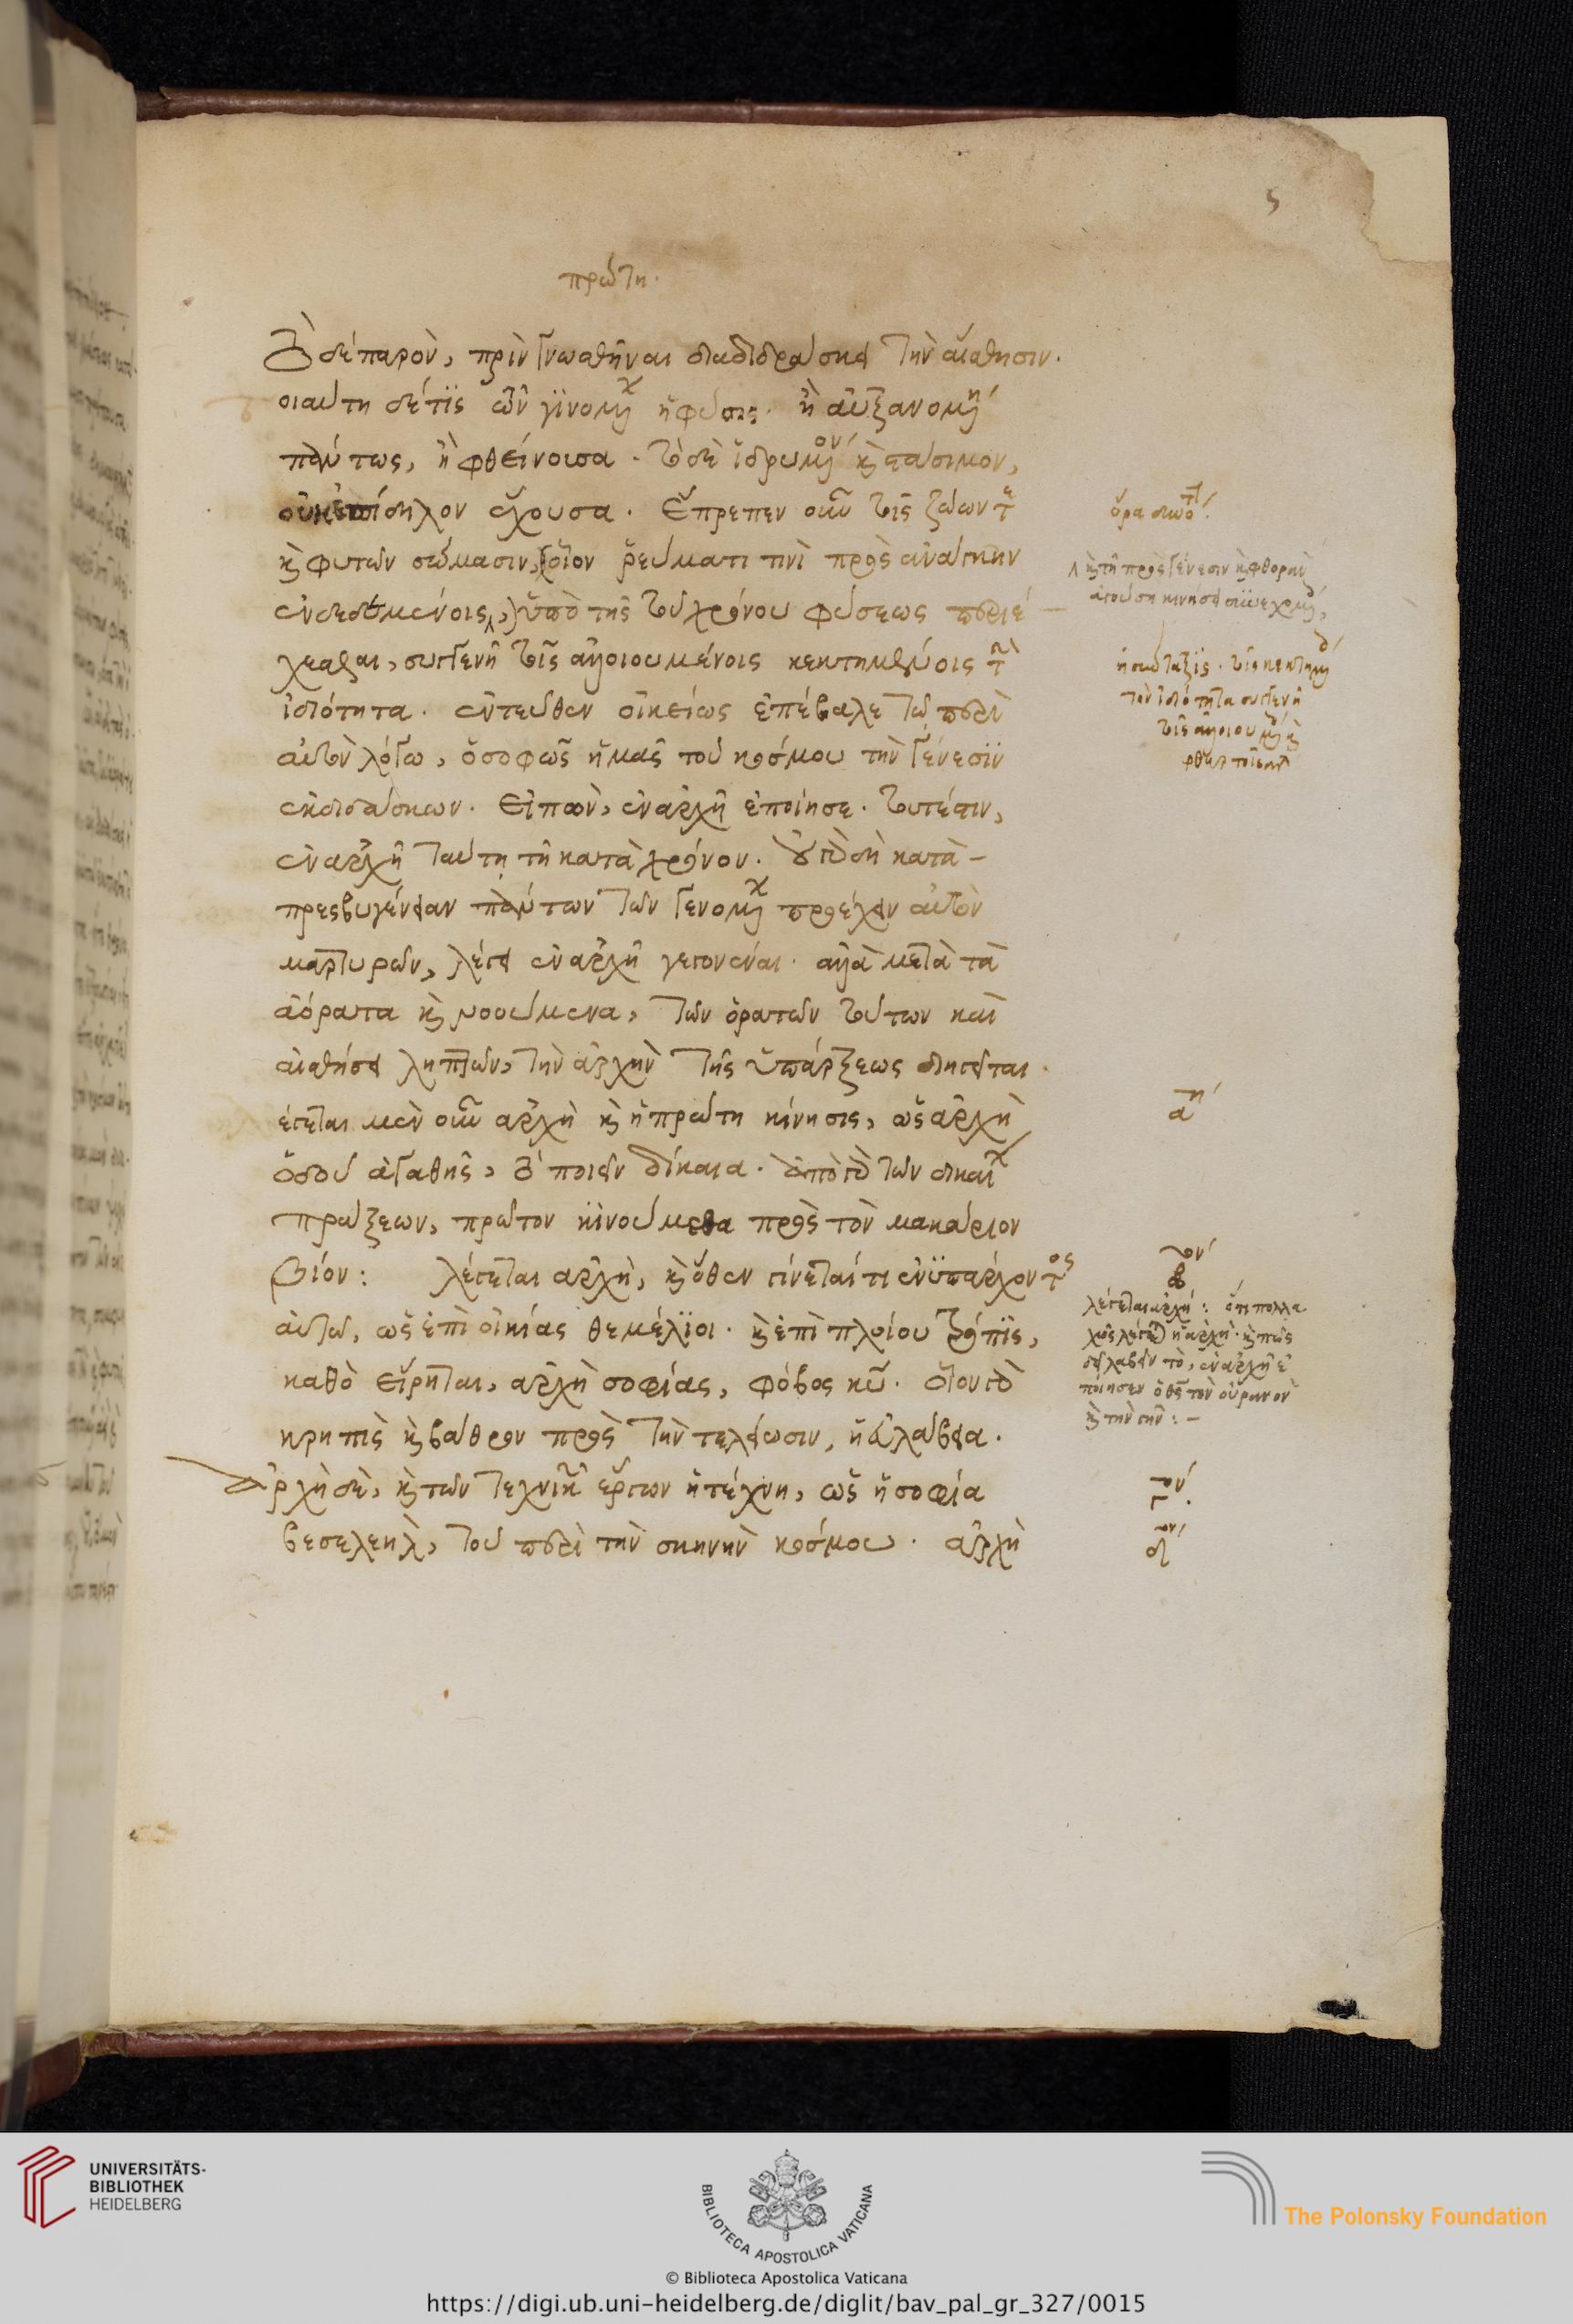 ς
πρώτη.
Τὸ δὲ παρὸν, πρὶν γνωσθῆναι διαδιδράσκει τὴν αἴσθησιν.
οιαύτη δέ τις τῶν γινομ(ένων) ἡ φύσις. ἢ αὐξανομ(έν)η
πάντως, ἢ φθείνουσα. τὸ δὲ ἱδρυμ(έν)ον κ(αὶ) στάσιμον,
οὐκ ἐπίδηλον ἔχουσα. Ἔπρεπεν οὖν τοῖς ζώων τε
κ(αὶ) φυτῶν σώμασιν, οἷον ῥεύματι τινὶ πρὸς ἀνάγκην
ἐνδεδεμένοις, ὑπὸ τῆς τοῦ χρόνου φύσεως περιέ-
χεσθαι, συγγενῆ τοῖς ἀλλοιουμένοις κεκτημένοις τὴν
ἰδιότητα. ἐντεῦθεν οἰκείως ἐπέβαλε τῷ περὶ
αὐτὸν λόγῳ, ὁ σοφῶς ἡμᾶς τοῦ κόσμου τὴν γένεσιν
ἐκδιδάσκων. Εἰπὼν, ἐν ἀρχῆ ἐποίησε. τουτέστιν,
ἐν ἀρχῆ ταύτη τῆ κατὰ χρόνον. οὐ γὰρ δὴ κατὰ-
πρεσβυγένειαν πάντων τῶν γενομ(ένων) προέχειν αὐτὸν
μαρτυρῶν, λέγει ἐν ἀρχῆ γεγονέναι. ἀλλὰ μετὰ τὰ
ἀόρατα κ(αὶ) νοούμενα, τῶν ὁρατῶν τούτων καὶ
αἰσθήσει ληπτῶν, τὴν ἀρχὴν τῆς ὑπάρξεως διηγεῖται.
έγεται μὲν οὖν ἀρχὴ κ(αὶ) ἡ πρώτη κίνησις, ὡς ἀρχὴ
ὁδοῦ ἀγαθῆς, τὸ ποιεῖν δίκαια. ἀπὸ γὰρ τῶν δικαί(ων)
πράξεων, πρῶτον κινούμεθα πρὸς τὸν μακάριον
βίον: λέγεται ἀρχὴ, κ(αὶ) ὅθεν γίνεταί τι ἐνϋπάρχοντος
αὐτῶ, ὡς ἐπὶ οἰκίας θεμέλιοι. κ(αὶ) ἐπὶ πλοίου τρόπις,
καθὸ εἴρηται, ἀρχὴ σοφίας, φόβος κυ. οἷον γὰρ
κρηπὶς κ(αὶ) βάθρον πρὸς τὴν τελείωσιν, ἡ εὐλάβεια.
Ἀρχὴ δὲ, κ(αὶ) τῶν τεχνικῶν ἔργων ἡ τέχνη, ὡς ἡ σοφία
βεσελεὴλ, τοῦ περὶ τὴν σκηνὴν κόσμου. ἀρχὴ
κ(αὶ) τῆ πρὸς γένεσιν κ(αὶ) φθορὰν
ἀγούση κινήσει συνεχομ(ένοις)
ἡ σύνταξις. τοῖς κεκτημ(ένοις)
τὴν ἰδιότητα συγγενῆ
τοῖς ἀλλοιουμ(ένοις) κ(αὶ)
α
β
λέγεται ἀρχή: ὅτι πολλα
χῶς λέγεται ἡ ἀρχὴ. κ(αὶ) πῶς
δεῖ λαβεῖν τὸ, ἐν ἀρχῆ ἐ
ποίησεν ὁ θς τὸν οὐρανὸν
κ(αὶ) τὴν γῆν:-
γον
δον
UNIVERSITÄTS-
BIBLIOTHEK
HEIDELBERG
BIBLIOTECA APOSTOLICA VATICANA
The Polonsky Foundation
© Biblioteca Apostolica Vaticana
https://digi.ub.uni-heidelberg.de/diglit/bav_pal_gr_327/0015